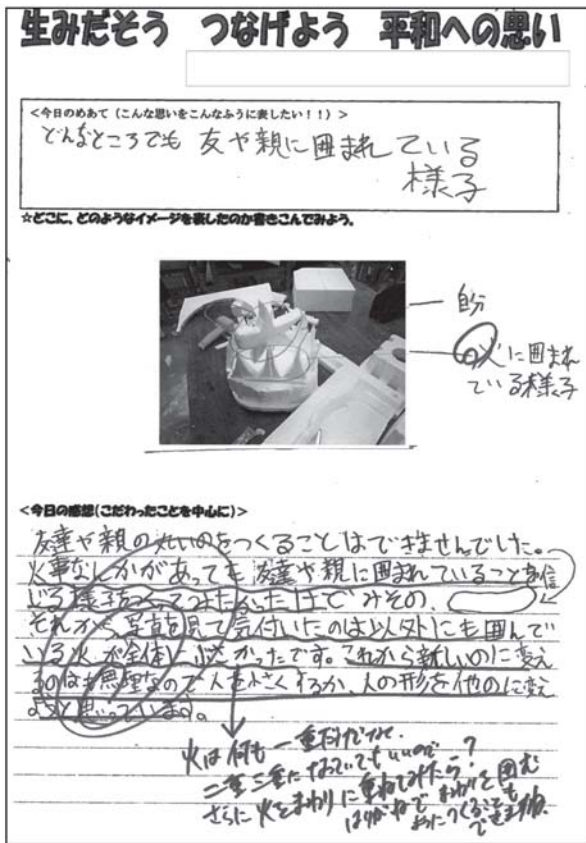 生みだそう つなげよう 平和への思い
<今日のめあて(こんな思いをこんなふうに表したい!!)>
どんなところでも 友や親に囲まれている
様子
☆どこに、どのようなイメージを表したのか書きこんでみよう。
自分
火に囲まれ
ている様子
<今日の感想(こだわったことを中心に)>
友達や親の丸いのをつくることはできませんでした。
火事なんかがあっても 友達や親に囲まれていることを信
じる様子を
それから、写真を見て気付いたのは以外にも囲んで
いる火が全体に小さかったです。これから新しいのに変え
るのはも無理なので人を小さくするか、人の形を他のに変え
ようと思っています。
火は何も一重だけじゃなく
二重三重になっていてもいいので?
さらに火をまわりに重ねてみたら?
はりがねでまわりを囲む
ようにつくることも
できますね。